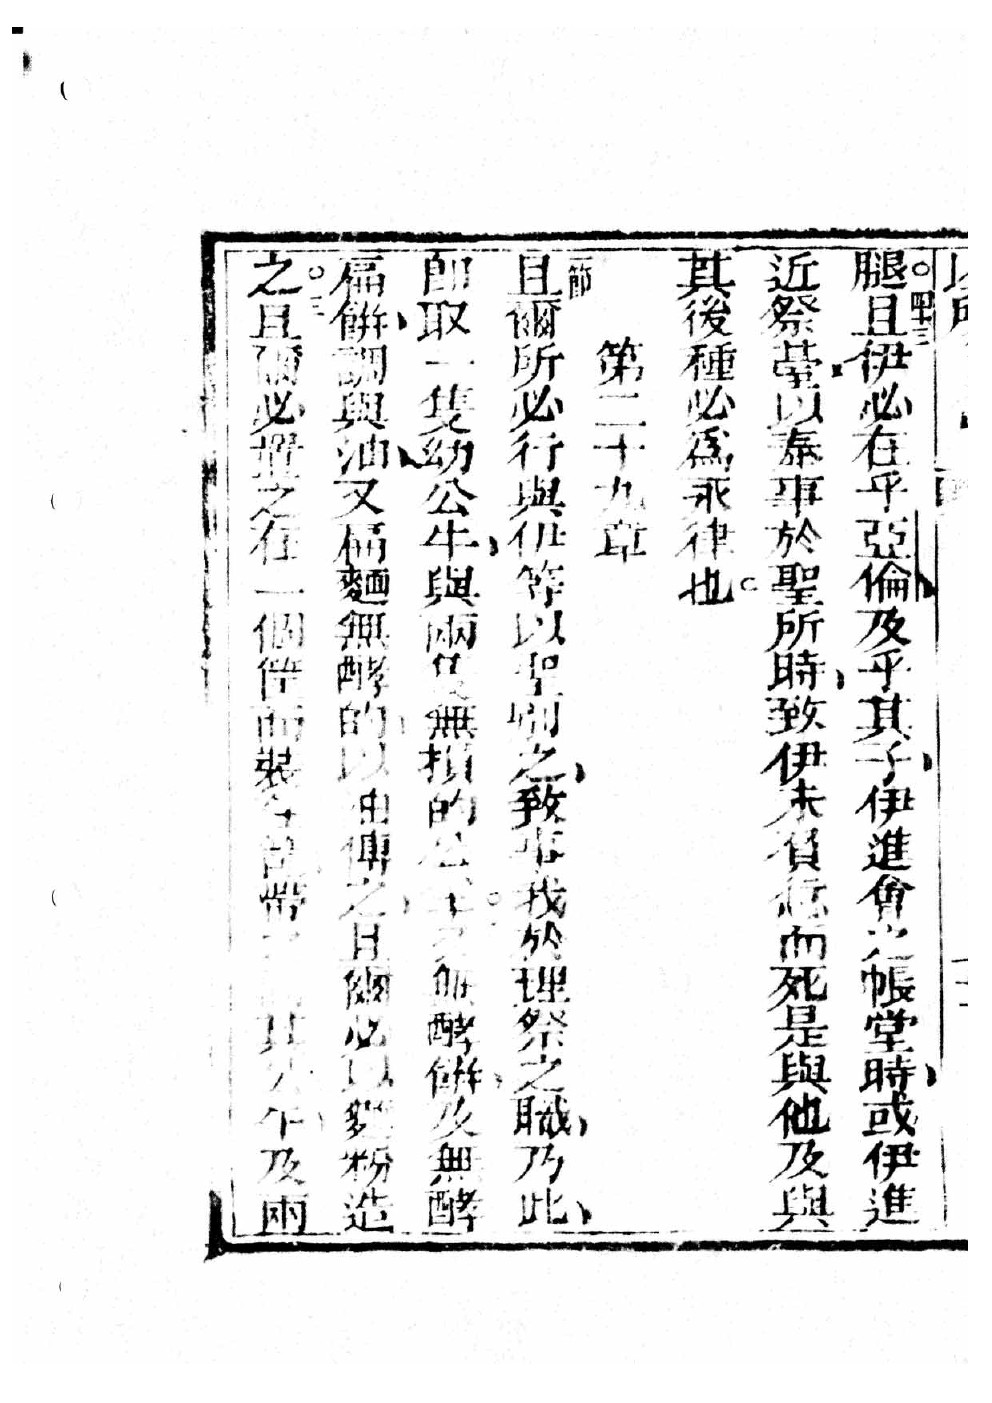 腿○四三且伊必在乎亞倫及乎其子伊進會之帳堂時或伊進
近祭臺以奏事於聖所時致伊未負愆而死是與他及與
其後種必爲永律也
第二十九章
一節且爾所必行與伊等以聖別之致事我於理祭之職乃此
卽取一隻幼公牛與兩隻無損的公羊○二無酵餅及無酵
匾餅調與油又匾麵無酵的以油傅之且爾必以麵粉造
之○三且爾必置之在一個筐而裝在筐帶之與其公牛及兩